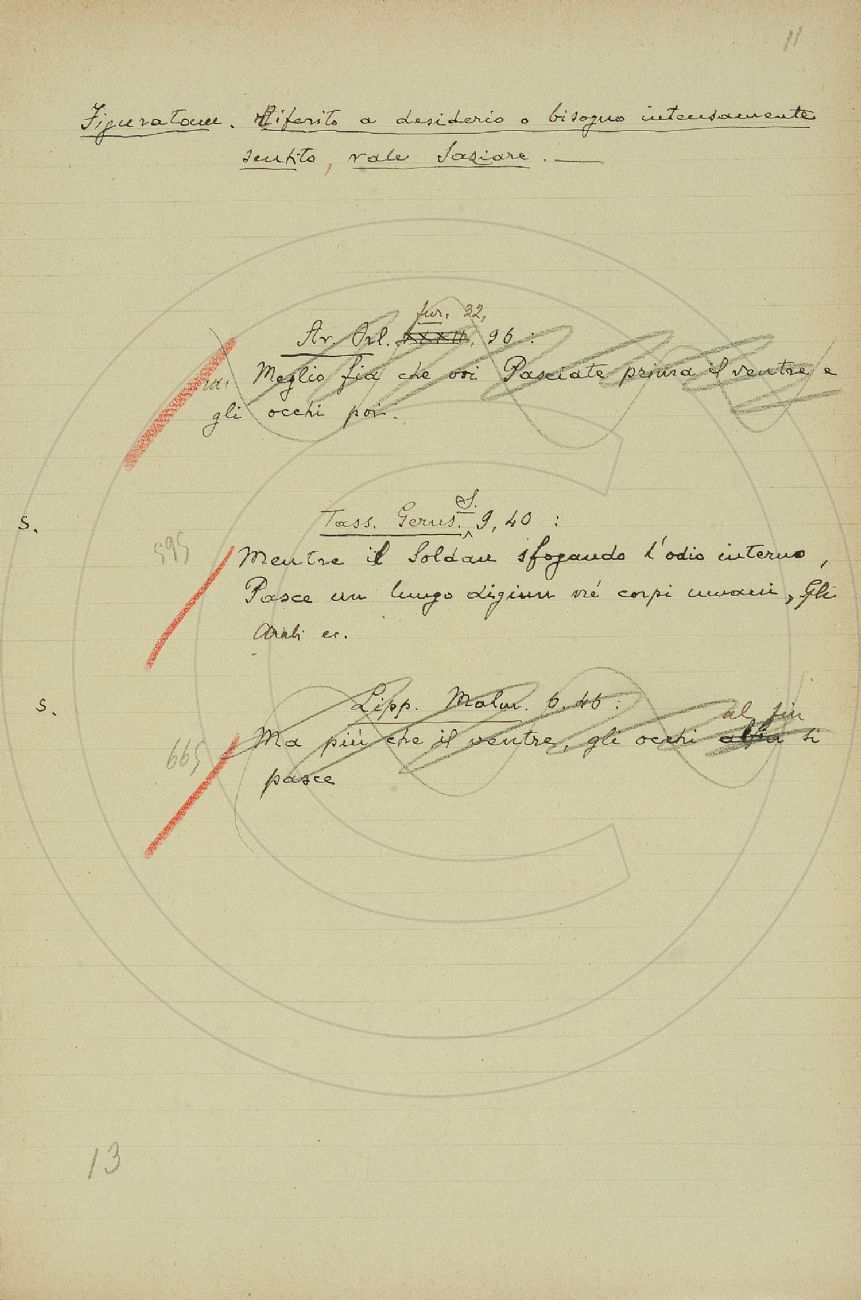 11
Figuratam. Riferito a desiderio o bisogno intensamente
sentito, vale Saziare. —
fur. 32,
Ar. Orl. XXXII, 96 :
Meglio fia che voi Pasciate prima il ventre e
gli occhi poi.
S.
S. Tass. Gerus. 9, 40 :
595 Mentre il Soldan sfogando l'odio interno,
Pasce un lungo digiun ne' corpi umani, Gli
Arabi ec.
S. Lipp. Malm. 6. 46 :
al fin
665 Ma più che il ventre, gli occhi alfin si
pasce
13